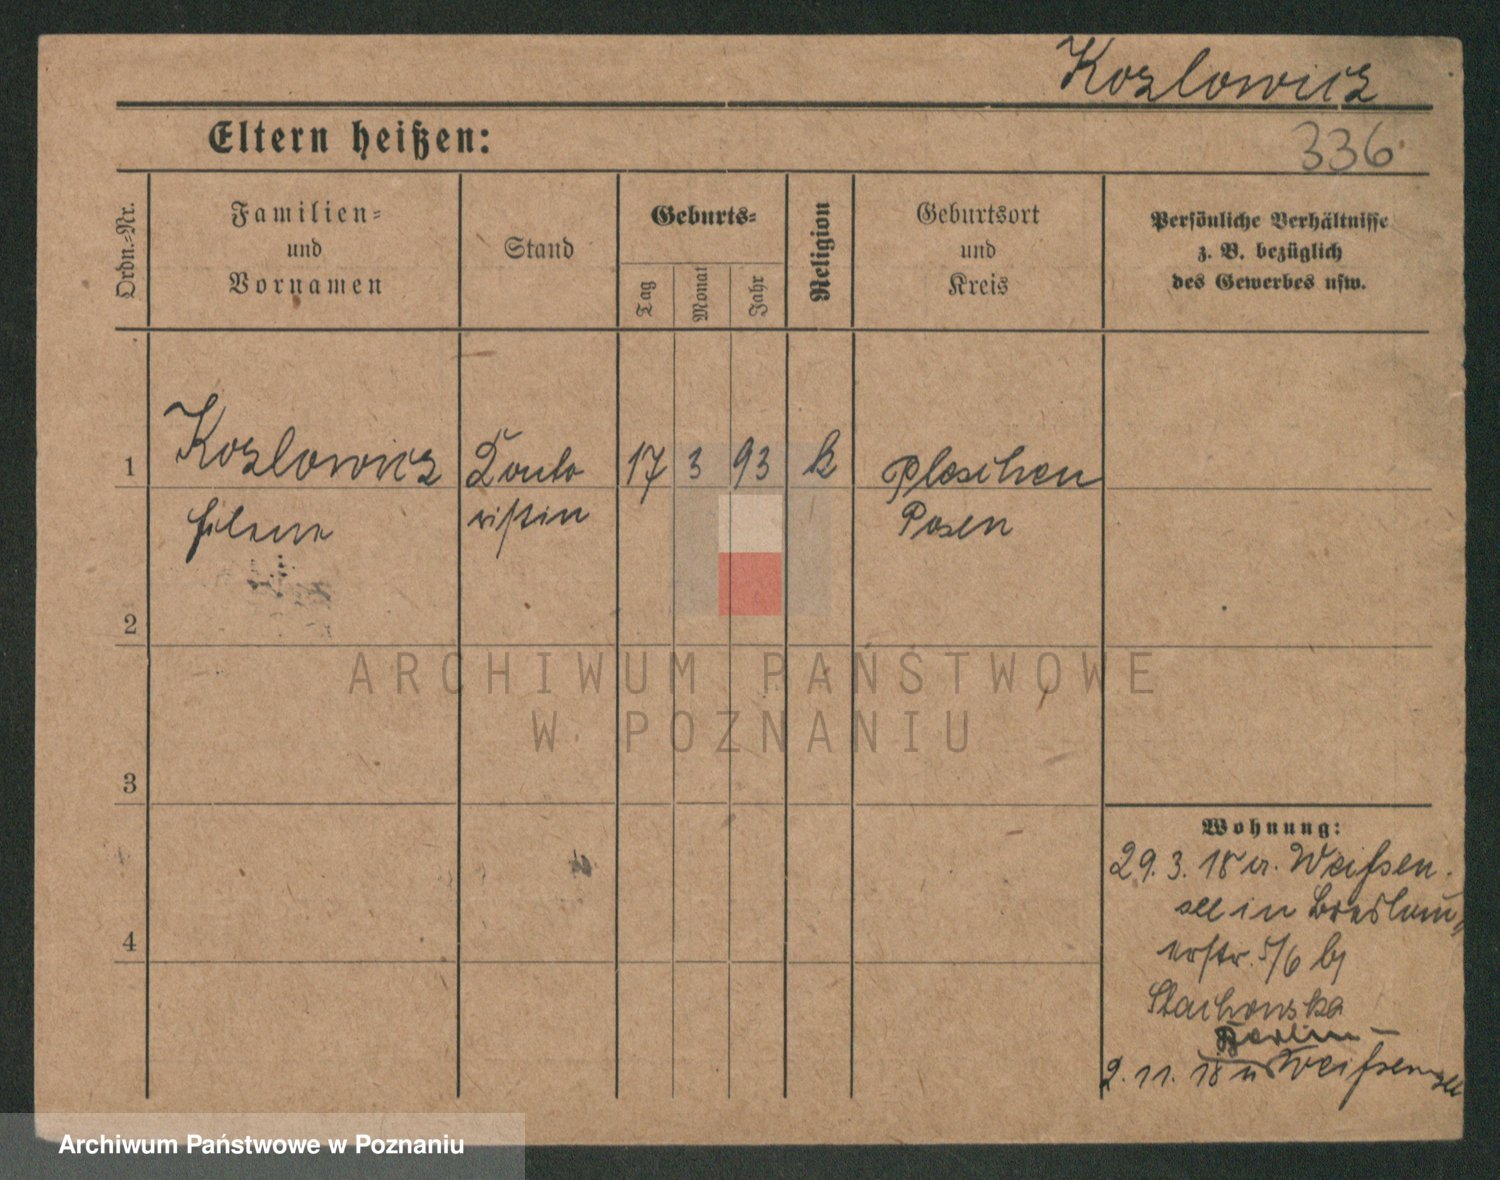 Kozlowicz
Eltern heißen:
336
Ordn.=Nr.
Familien=
und
Vornamen
Stand
Geburts=
Tag
Monat
Jahr
Religion
Geburtsort
und
Kreis
Persönliche Verhältnisse
z. B. bezüglich
des Gewerbes usw.
1
Kozlowicz
Helene
Konto
ristin
17
3
93
k
Pleschen
Posen
2
3
4
Wohnung:
29. 3. 18 v. Weißen-
see in Breslau,
erstr. 5/6 bj
Stachowska
Berlin-
2. 11. 18 n Weißensee
ARCHIWUM PAŃSTWOWE
W POZNANIU
Archiwum Państwowe w Poznaniu